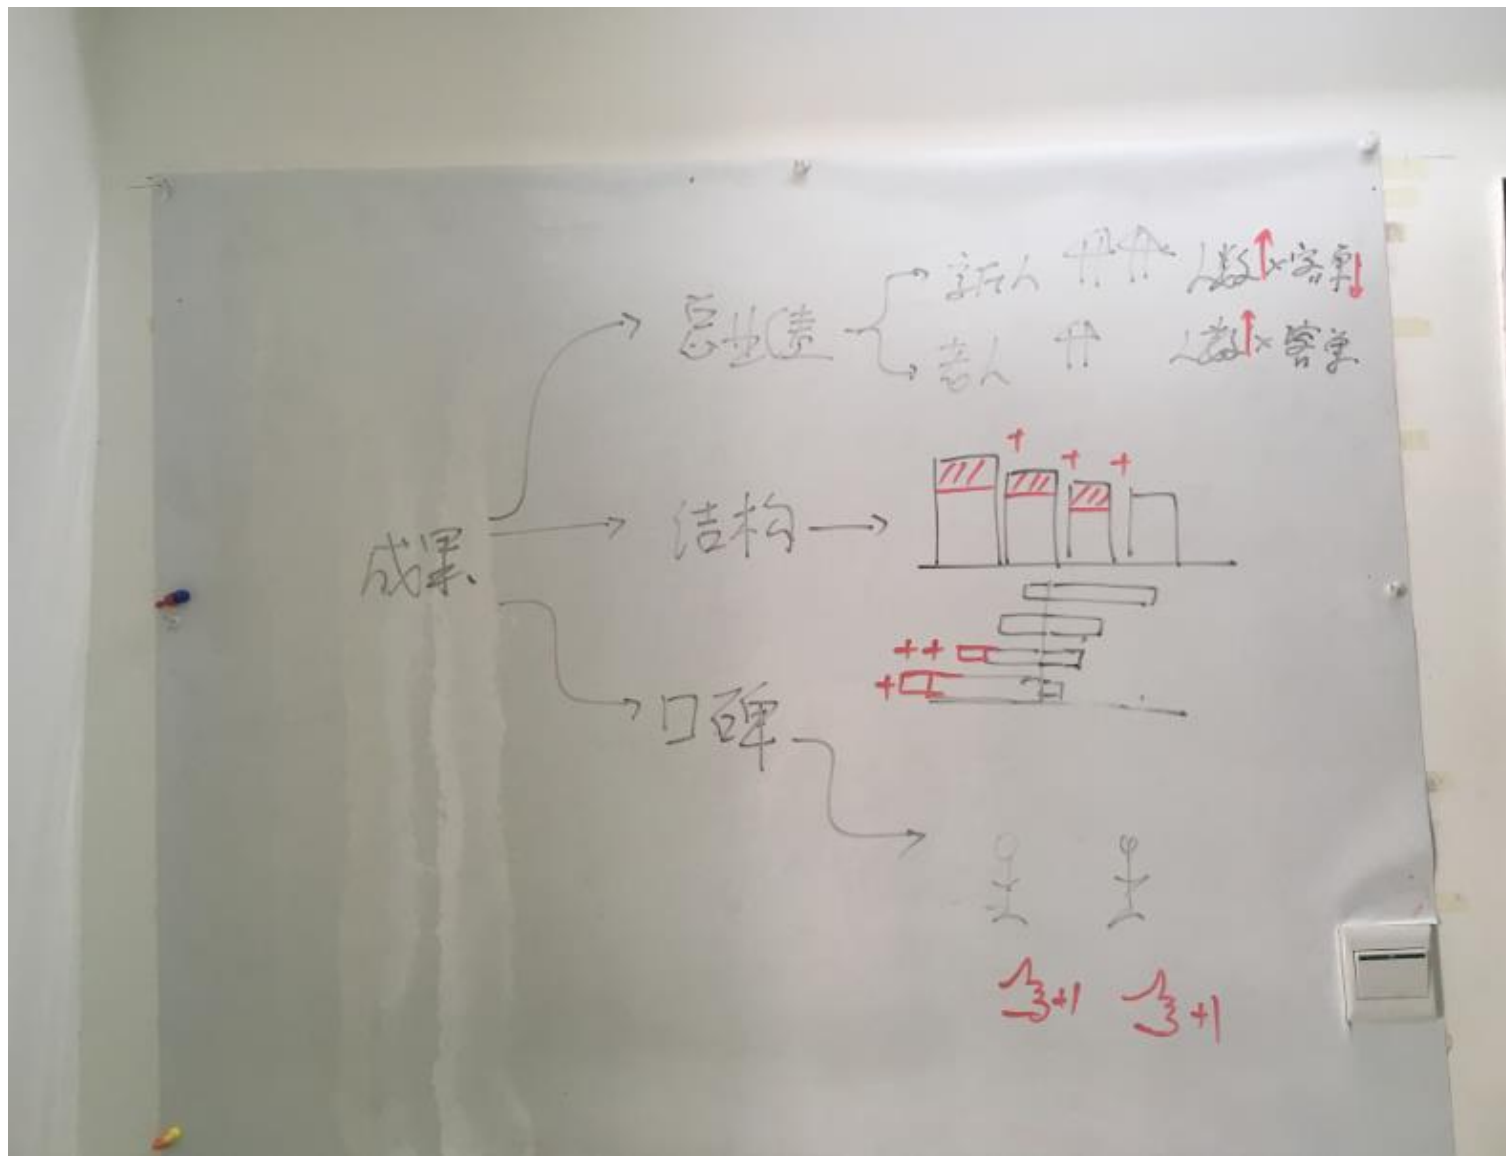 成果
总业绩
新人 人数↑×客单↓
老人 人数↑×客单
结构
+ + +
++
+
口碑
+1 +1